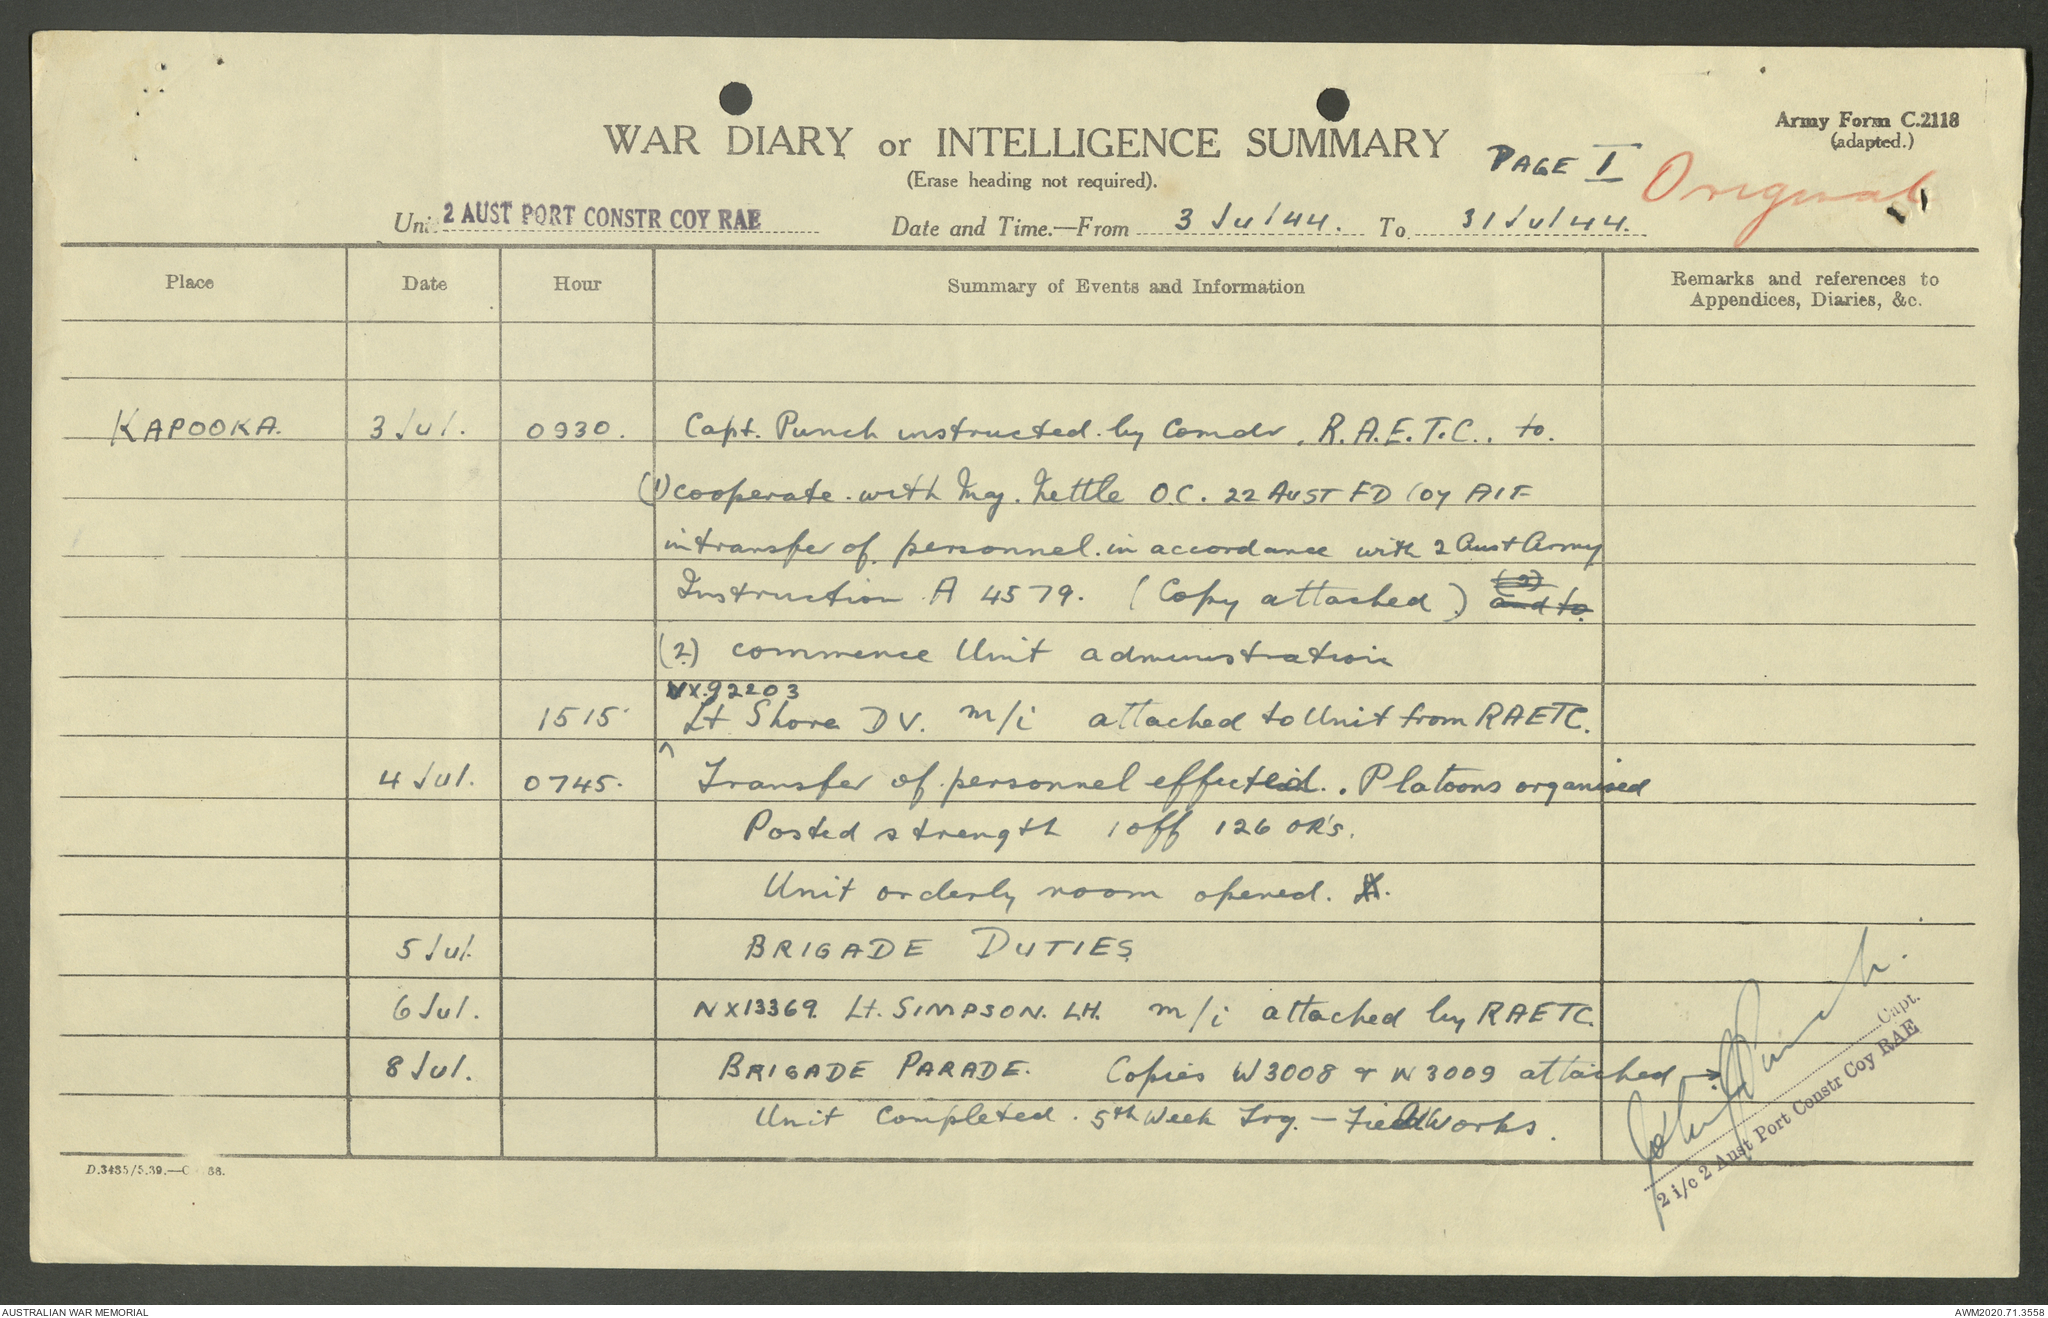 Army Form C.2118
(adapted.)
WAR DIARY or INTELLIGENCE SUMMARY
PAGE I
Original
(Erase heading not required).
Unit 2 AUST PORT CONSTR COY RAE Date and Time.—From 3 Jul 44. To 31 Jul 44.
Place Date Hour Summary of Events and Information Remarks and references to
Appendices, Diaries, &c.
KAPOOKA. 3 Jul. 0930. Capt. Punch instructed by Comdr. R.A.E.T.C. to.
(1) cooperate with Maj. Nettle O.C. 22 AUST FD Coy AIF
in transfer of personnel in accordance with 2 Aust Army
Instruction A 4579. (Copy attached) (2) and to
(2) commence Unit administration
NX92203
1515 Lt Shore DV. m/i attached to Unit from RAETC.
4 Jul. 0745. Transfer of personnel effected. Platoons organised
Posted strength 1 off 126 OR's.
Unit orderly room opened.
5 Jul. BRIGADE DUTIES
6 Jul. NX13369. Lt. SIMPSON. LH. m/i attached by RAETC.
8 Jul. BRIGADE PARADE. Copies W3008 & W3009 attached →
Unit completed. 5th Week Trg. — Field Works.
Punch. Capt.
2 i/c 2 Aust Port Constr Coy RAE
D.3485/5.39.—
AUSTRALIAN WAR MEMORIAL
AWM2020.71.3558